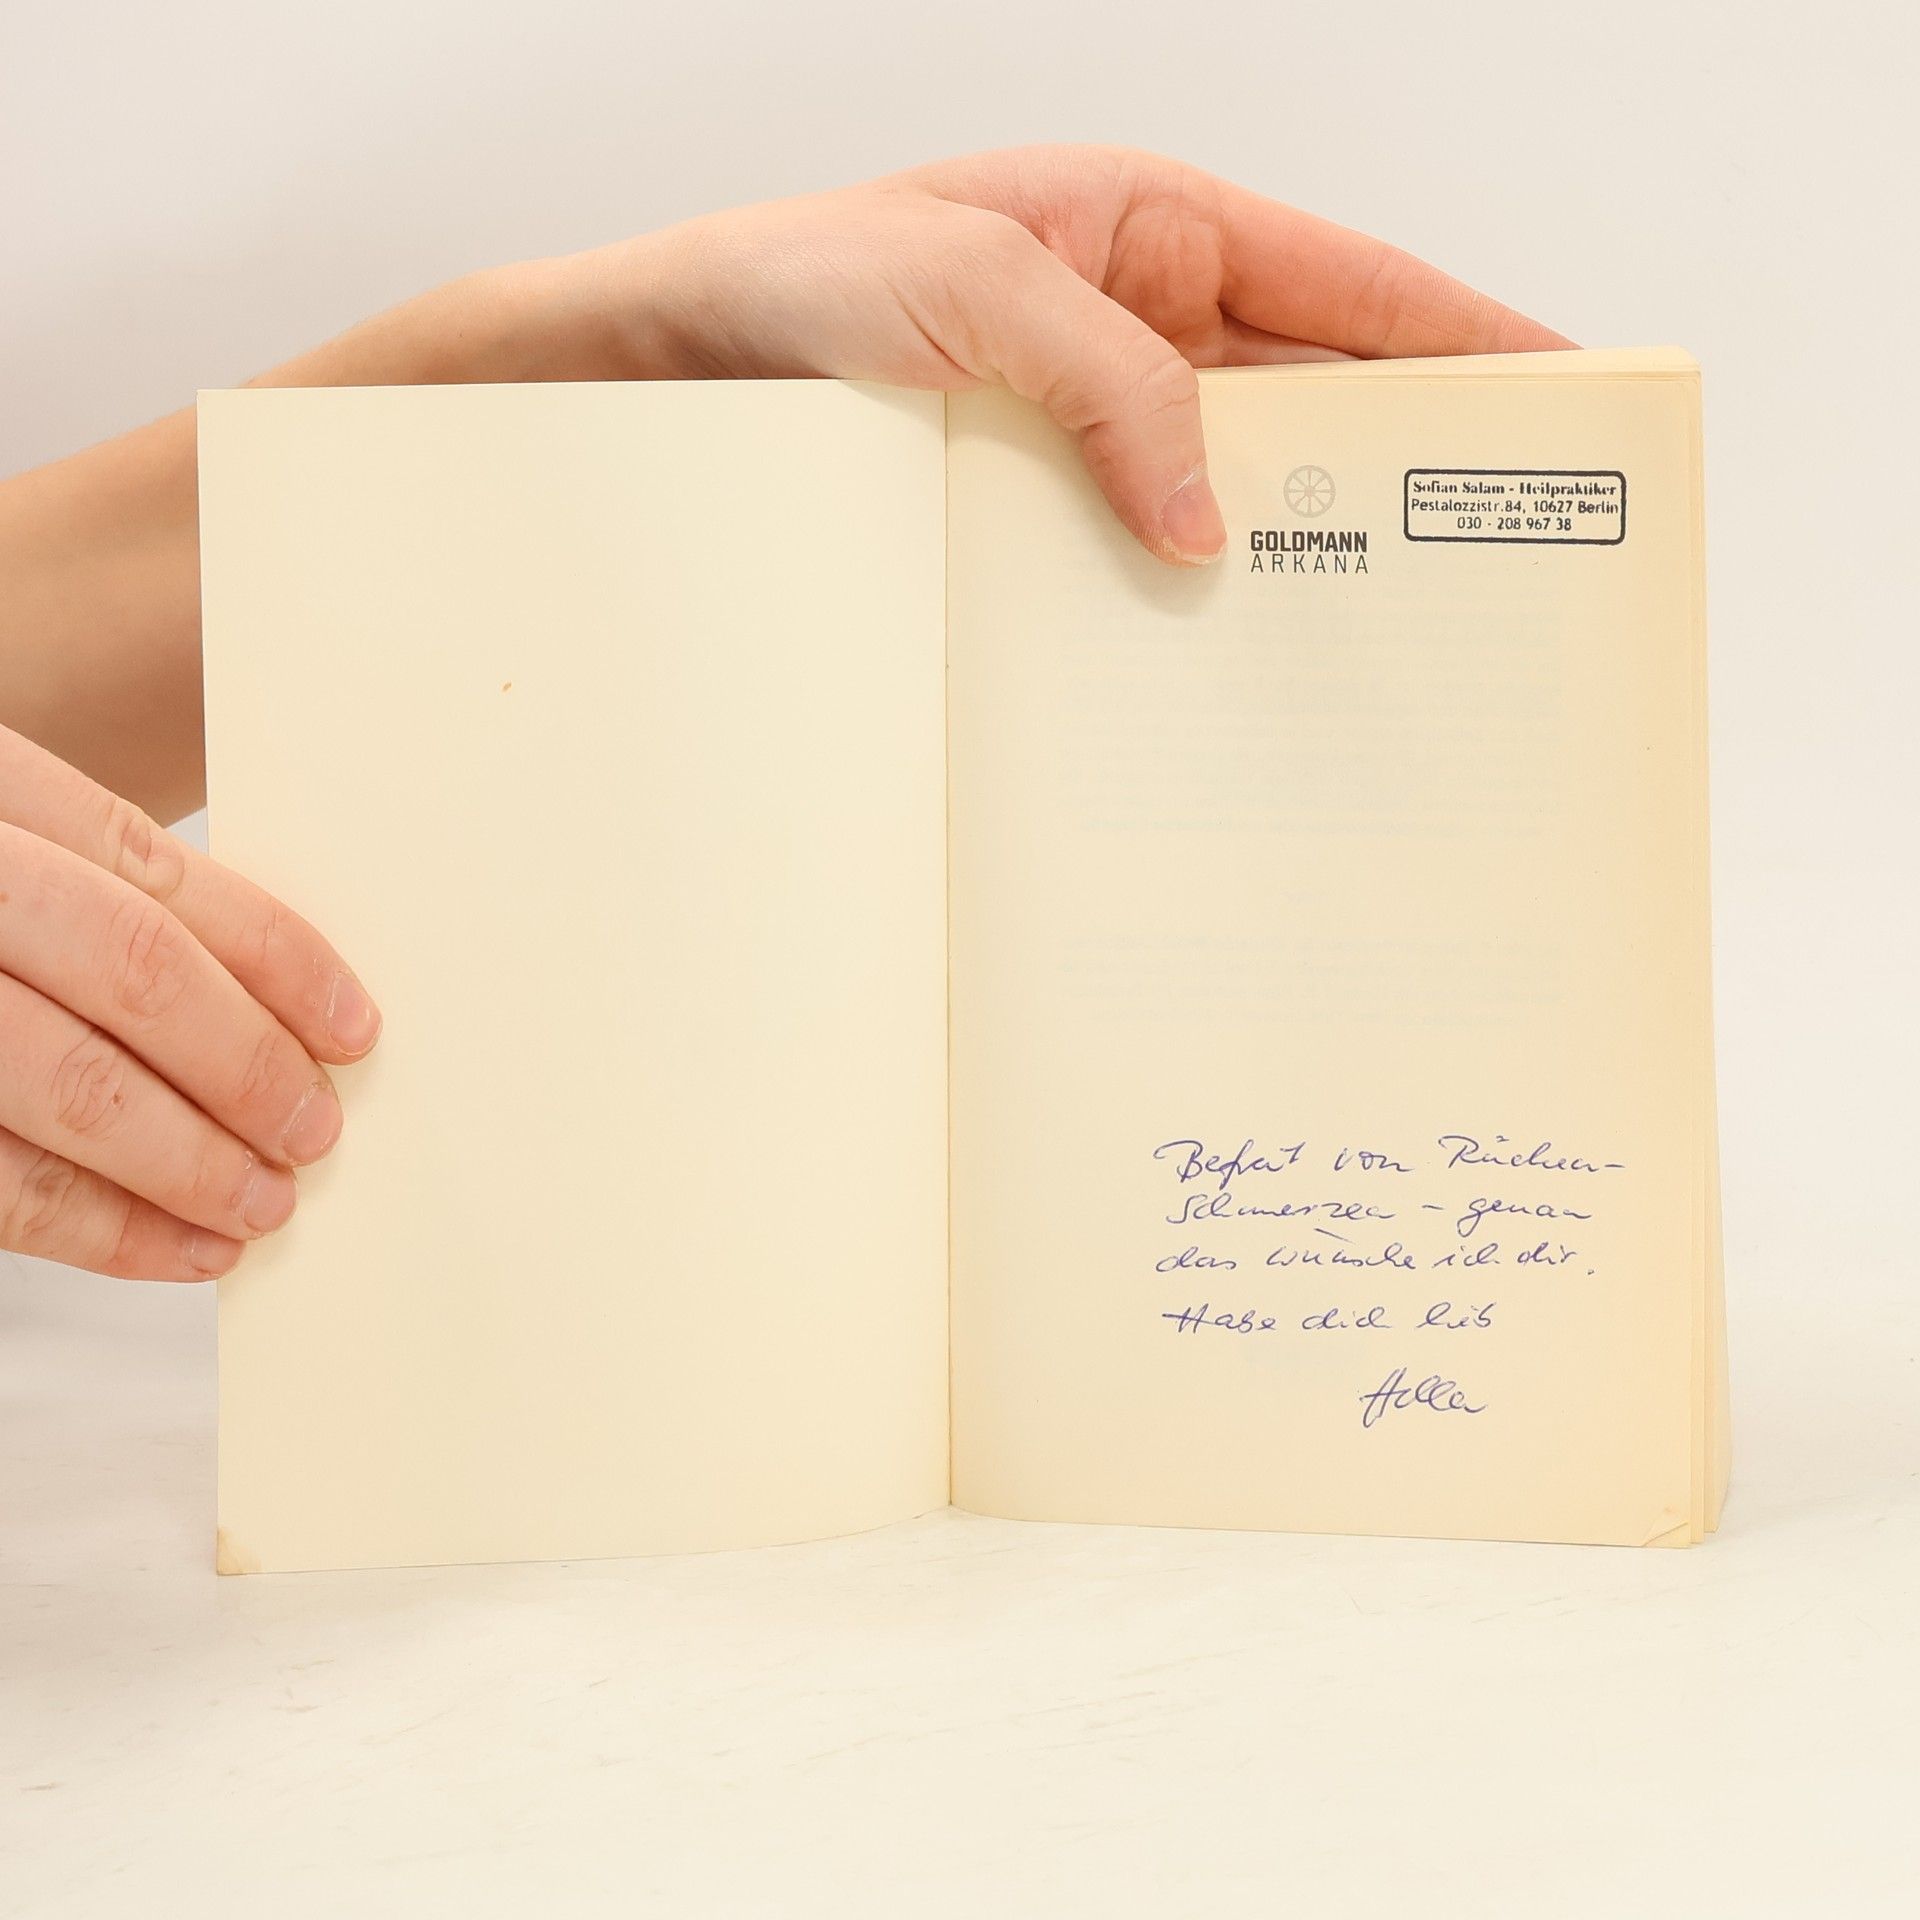 GOLDMANN
ARKANA
Sofian Salam - Heilpraktiker
Pestalozzistr.84, 10627 Berlin
030 - 208 967 38
Befreit von Rücken-
schmerzen - genau
das wünsche ich dir.
Habe dich lieb